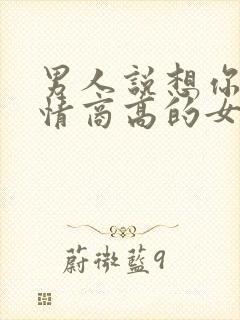 男人說想你
情商高的女
蔚微藍9